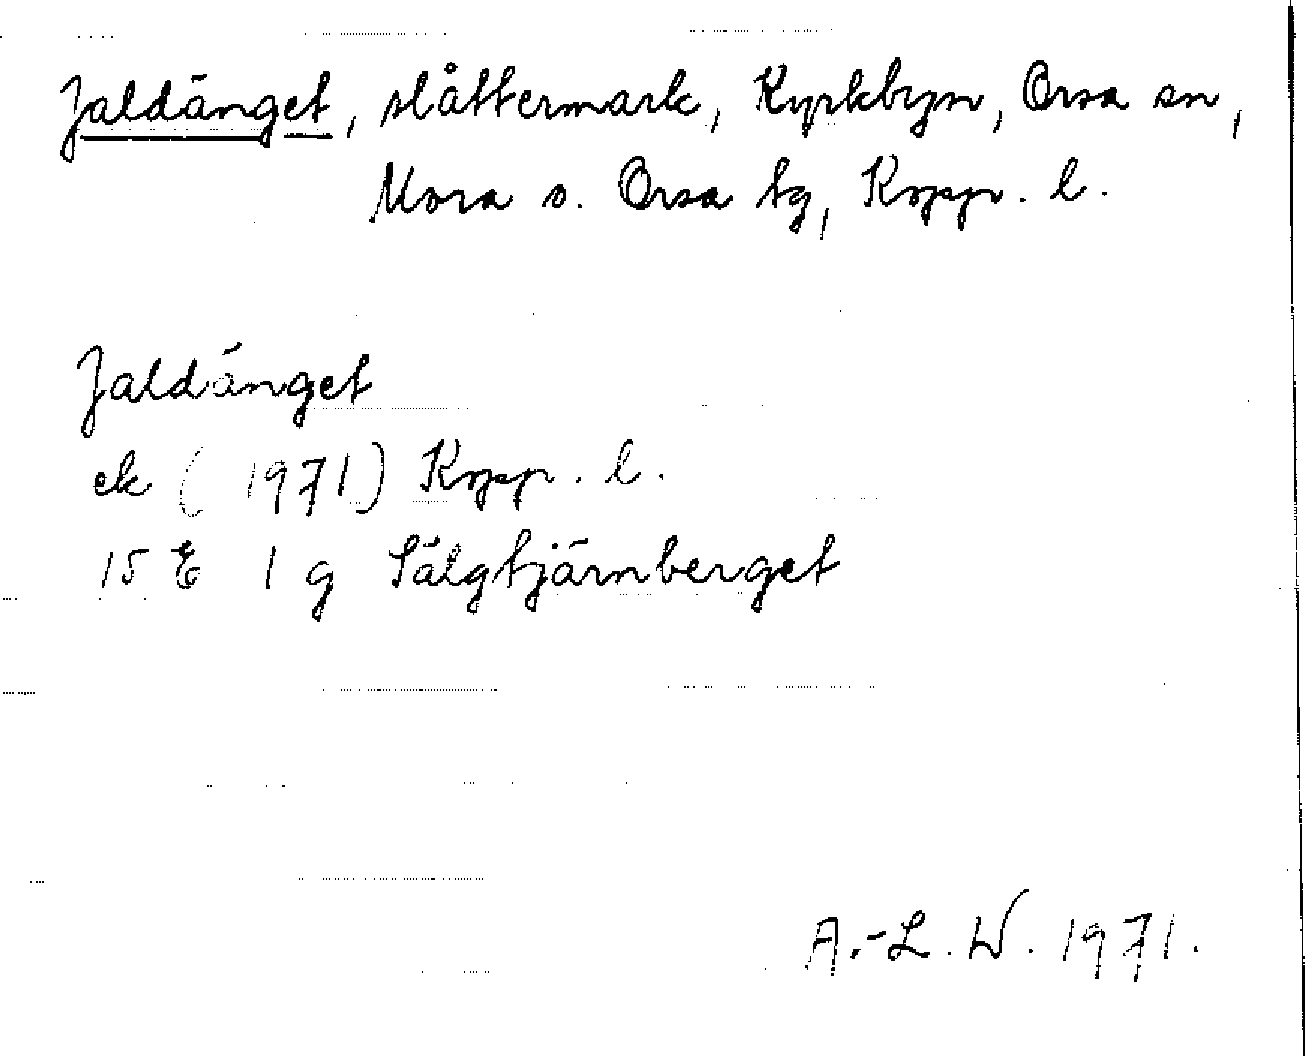 Jaldänget, slåttermark, Kyrkbyn, Orsa sn,
Mora o. Orsa tg, Kopp. l.
Jaldänget
ek (1971) Kopp. l.
15 E 1 g Sälgtjärnberget
A.-L. W. 1971.